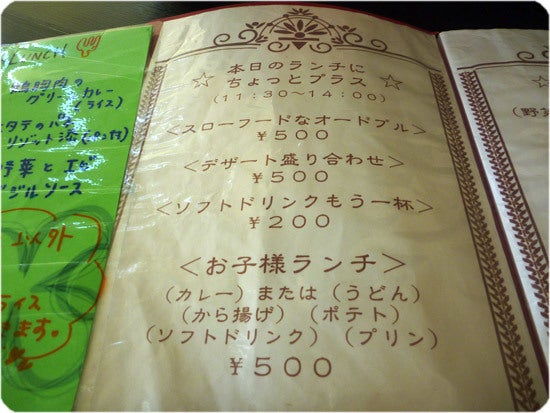 LUNCH
鶏胸肉の
グリーンカレー
(ライス)
リゾット
野菜と
ジルソース
ライス
きます。
本日のランチに
☆ ちょっとプラス ☆
(11:30~14:00)
<スローフードなオードブル>
¥500
<デザート盛り合わせ>
¥500
<ソフトドリンクもう一杯>
¥200
<お子様ランチ>
(カレー)または(うどん)
(から揚げ)(ポテト)
(ソフトドリンク)(プリン)
¥500
☆
(野菜